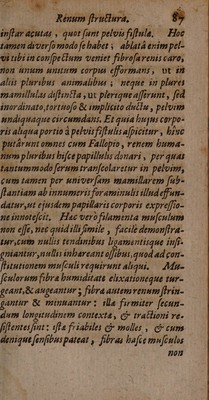 Renum structura. 87
instar acutas, quot sunt pelvis fistulæ. Hoc
tamen diverso modo se habet; ablatâ enim pel-
vi tibi in conspectum veniet fibrosa renis caro,
non unum unitum corpus efformans, ut in
aliis pluribus animalibus; neque in plures
mammillulas distincta, ut plerique asserunt, sed
inordinato, tortuoso & implicito ductu, pelvim
undiquaque circumdans. Et quia hujus corpo-
ris aliqua portio à pelvis fistulis aspicitur, hinc
putârunt omnes cum Fallopio, renem huma-
num pluribus hisce papillulis donari, per quas
tantummodo serum transcolaretur in pelvim,
cum tamen per universam mamillarem sub-
stantiam ab innumeris foraminulis illud effun-
datur, ut ejusdem papillaris corporis expressio-
ne innotescit. Hæc verò filamenta musculum
non esse, nec quid illi simile, facile demonstra-
tur, cum nullis tendinibus ligamentisque insi-
gniantur, nullis inhæreant ossibus, quod ad con-
stitutionem musculi requirunt aliqui. Mu-
sculorum fibræ humiditate elixationeque tur-
geant, & augeantur; fibræ autem renum strin-
gantur & minuantur: illæ firmiter secun-
dum longitudinem contextæ, & tractioni re-
sistentes sint: istæ friabiles & molles, & cum
denique sensibus pateat, fibras hasce musculos
non